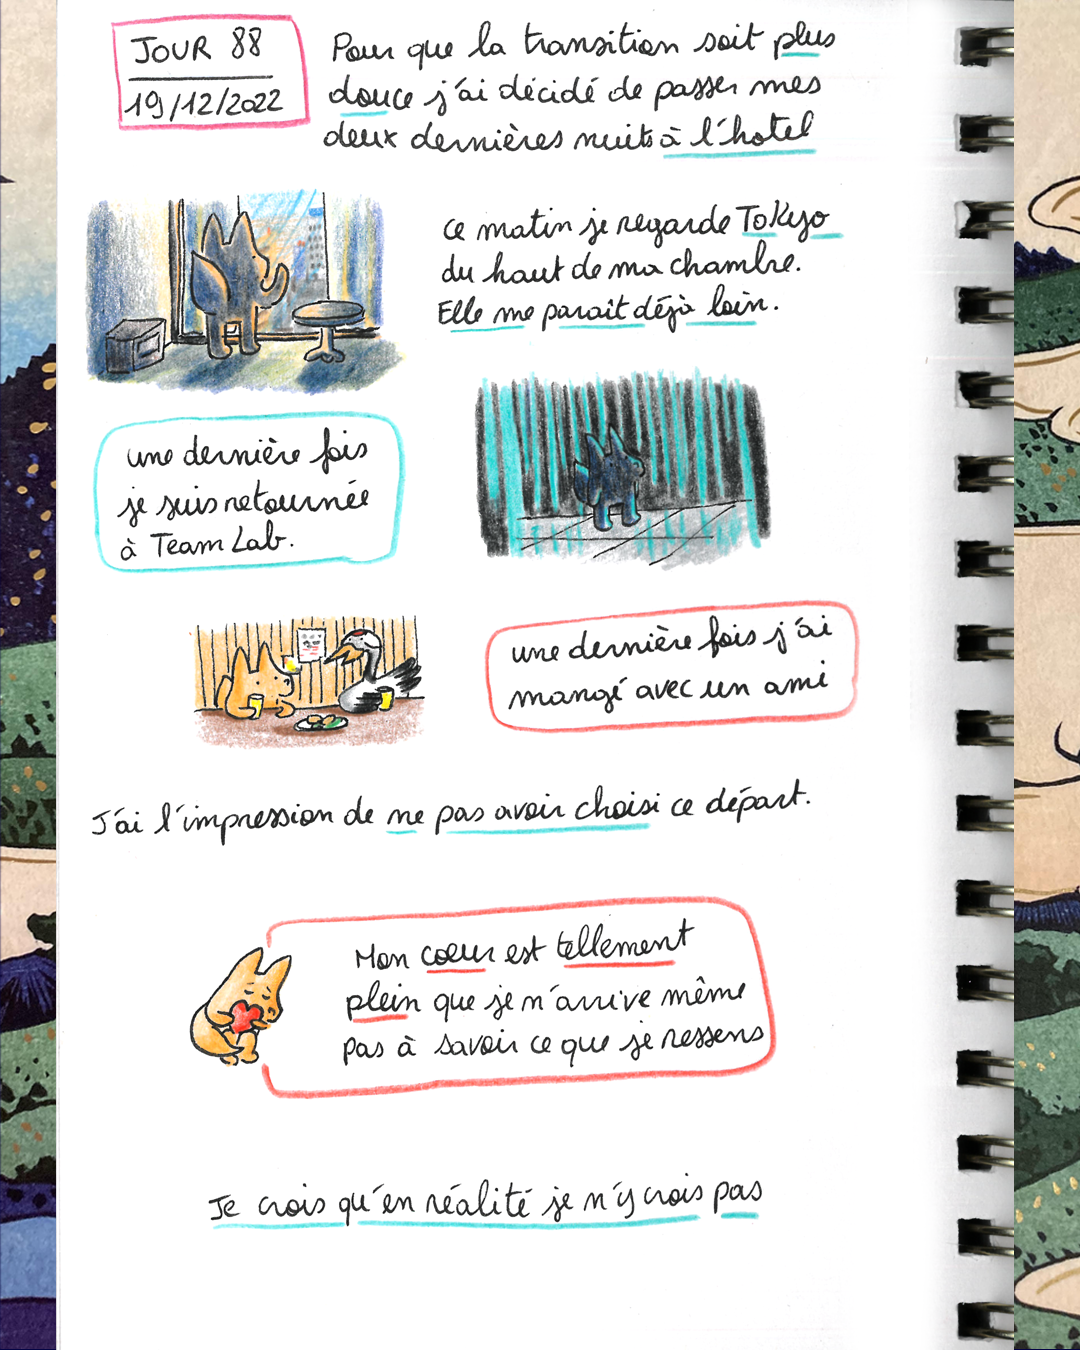 JOUR 88
19/12/2022
Pour que la transition soit plus
douce j'ai décidé de passer mes
deux dernières nuits à l'hotel
ce matin je regarde Tokyo
du haut de ma chambre.
Elle me parait déjà loin.
une dernière fois
je suis retournée
à Team Lab.
une dernière fois j'ai
mangé avec un ami
J'ai l'impression de ne pas avoir choisi ce départ.
Mon coeur est tellement
plein que je n'arrive même
pas à savoir ce que je ressens
Je crois qu'en réalité je n'y crois pas